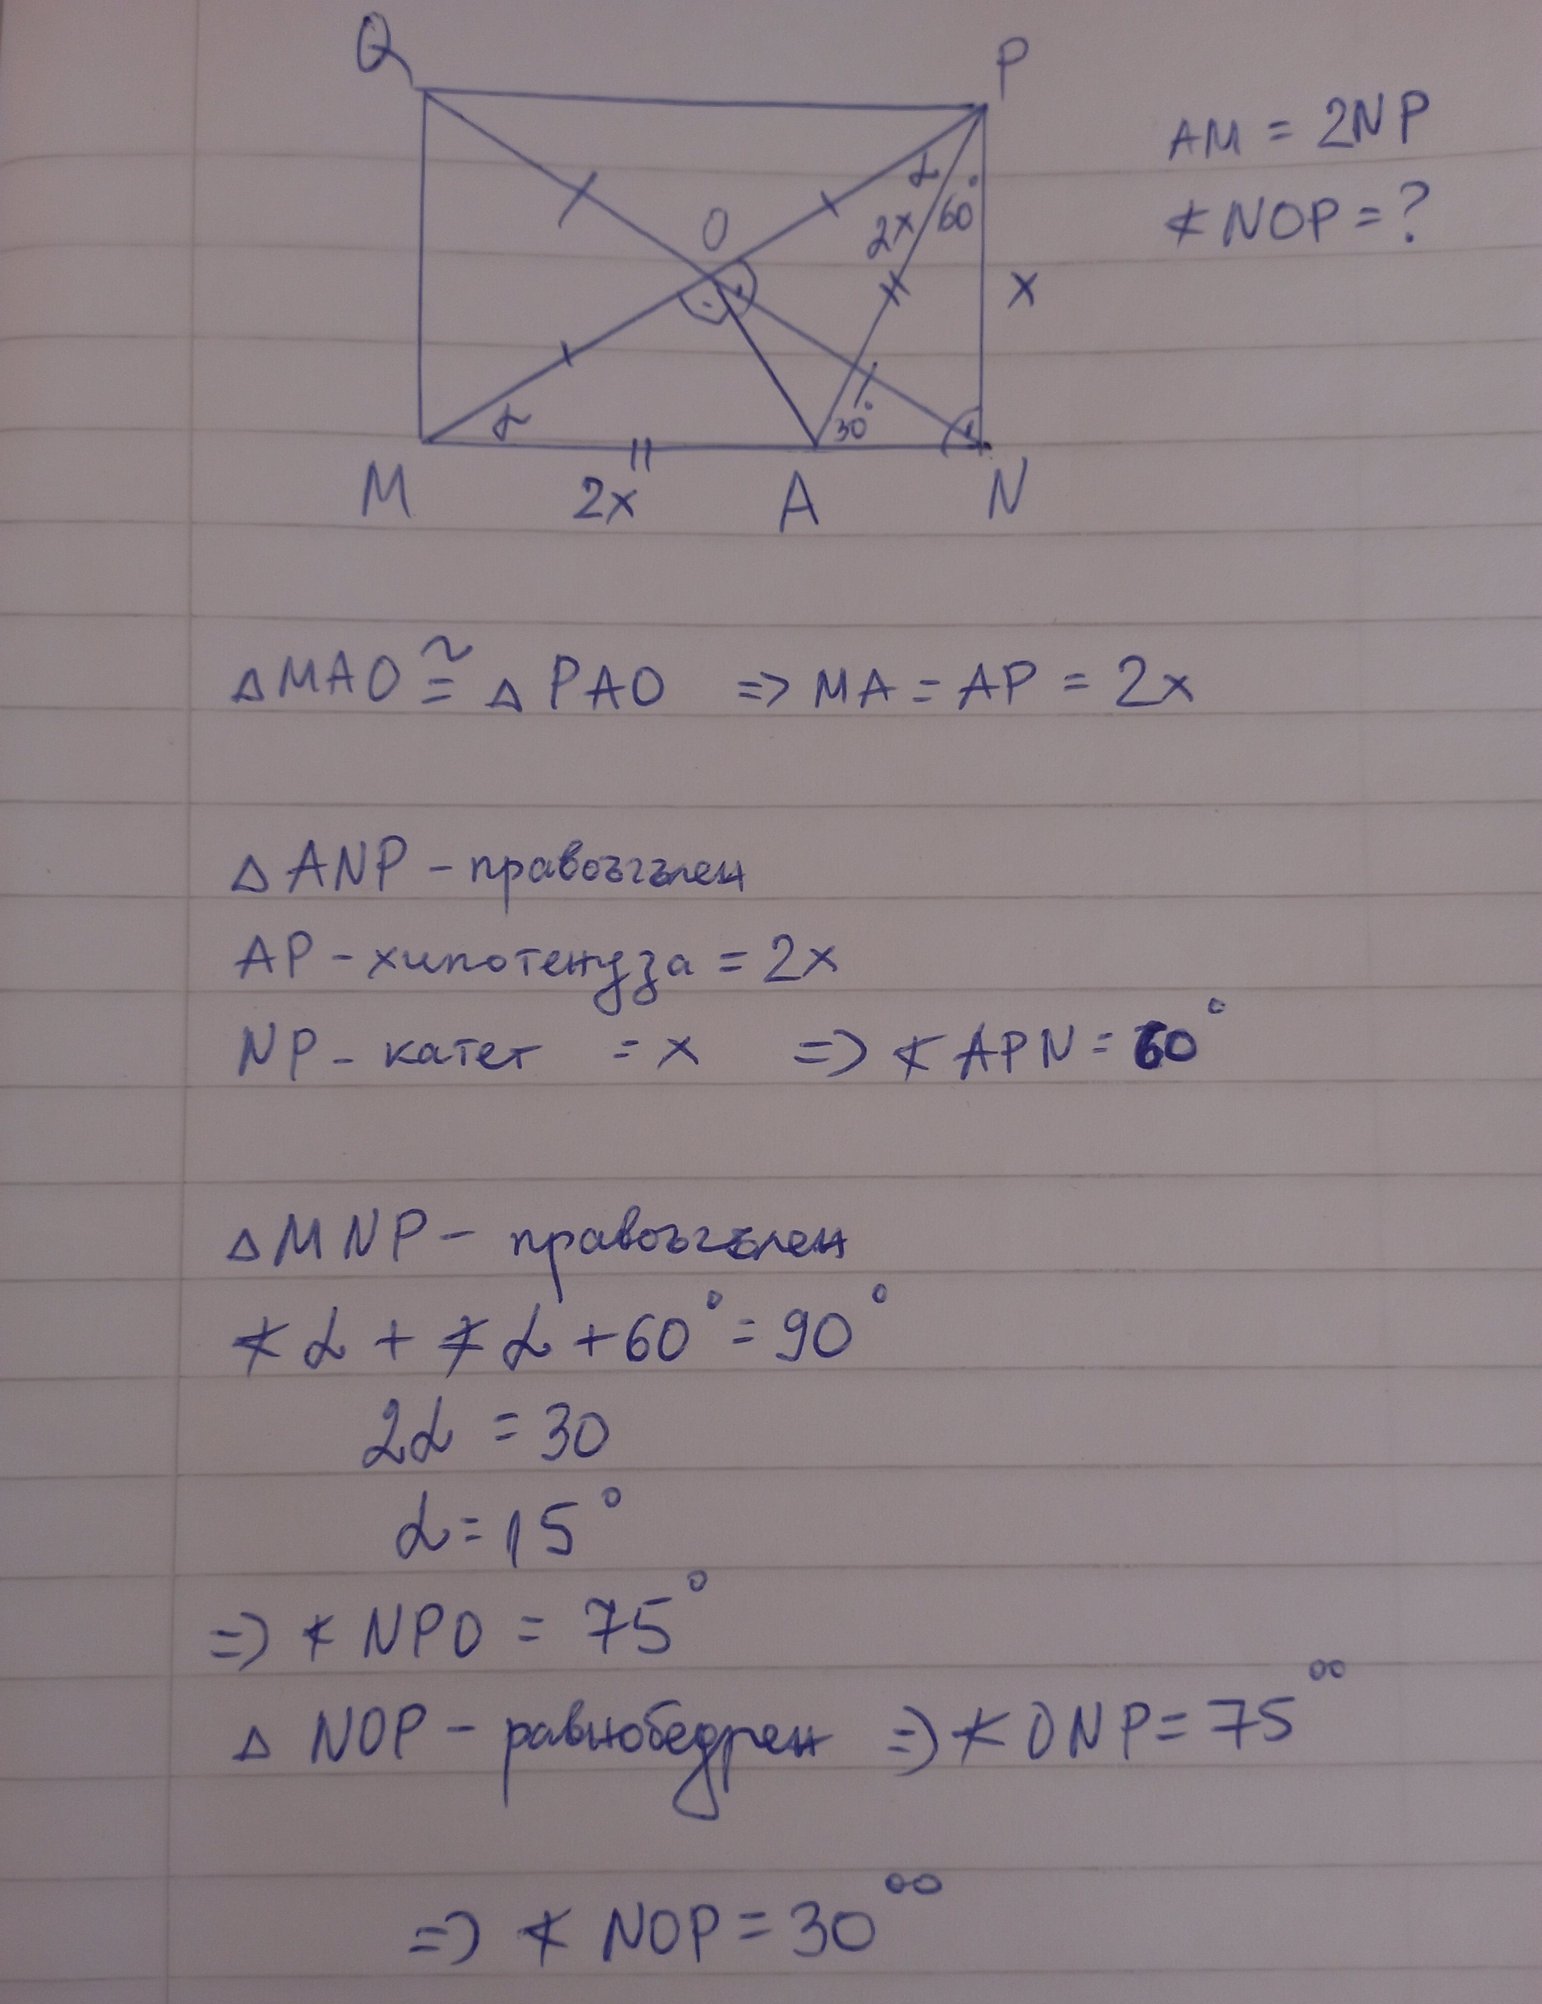 Q P
AM = 2NP
∢ NOP = ?
α
60°
2x
O
x
α
30°
M 2x A N
△ MAO ≅ △ PAO => MA = AP = 2x
△ ANP - правоъгълен
AP - хипотенуза = 2x
NP - катет = x => ∢ APN = 60°
△ MNP - правоъгълен
∢ α + ∢ α + 60° = 90°
2α = 30
α = 15°
=> ∢ NPO = 75°
△ NOP - равнобедрен => ∢ ONP = 75°°
=> ∢ NOP = 30°°